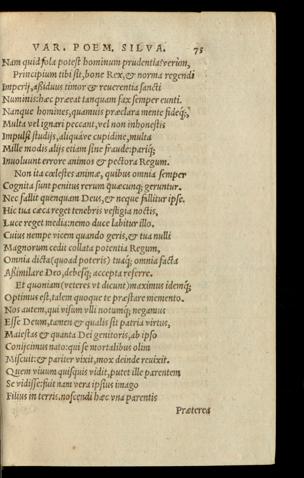 VAR. POEM. SILVA. 75
Nam quid sola potest hominum prudentia? verùm,
Principium tibi sit, bone Rex, & norma regendi
Imperij, assiduus timor & reuerentia sancti
Numinis: hæc præeat tanquam fax semper eunti.
Nanque homines, quamuis præclara mente fideq́;,
Multa vel ignari peccant, vel non inhonestis
Impulsi studijs, aliquáve cupidine, multa
Mille modis alijs etiam sine fraude: pariq́;
Inuoluunt errore animos & pectora Regum.
Non ita cœlestes animæ, quibus omnia semper
Cognita sunt penitus rerum quæcunq; geruntur.
Nec fallit quenquam Deus, & neque fallitur ipse.
Hic tua cæca reget tenebris vestigia noctis,
Luce reget media: nemo duce labitur illo.
Cuius nempe vicem quando geris, & tua nulli
Magnorum cedit collata potentia Regum,
Omnia dicta (quoad poteris) tuaq́; omnia facta
Assimilare Deo, debesq́; accepta referre.
Et quoniam (veteres vt dicunt) maximus idemq́;
Optimus est, talem quoque te præstare memento.
Nos autem, qui visum vlli notumq́; negamus
Esse Deum, tamen & qualis sit patria virtus,
Maiestas & quanta Dei genitoris, ab ipso
Conijcimus nato: qui se mortalibus olim
Miscuit: & pariter vixit, mox deinde reuixit.
Quem viuum quisquis vidit, putet ille parentem
Se vidisse: fuit nam vera ipsius imago
Filius in terris. noscendi hæc vna parentis
Præterea